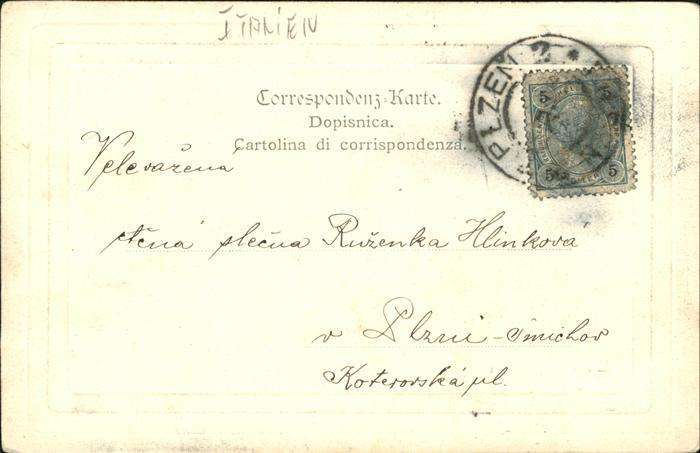 ITALIEN
Correspondenz-Karte.
Dopisnica.
Cartolina di corrispondenza.
PLZEŇ 2
5 5
5 5
Velevážená
ctěná slečna Růženka Hlinková
v Plzni-Smichov
Koterovská ul.